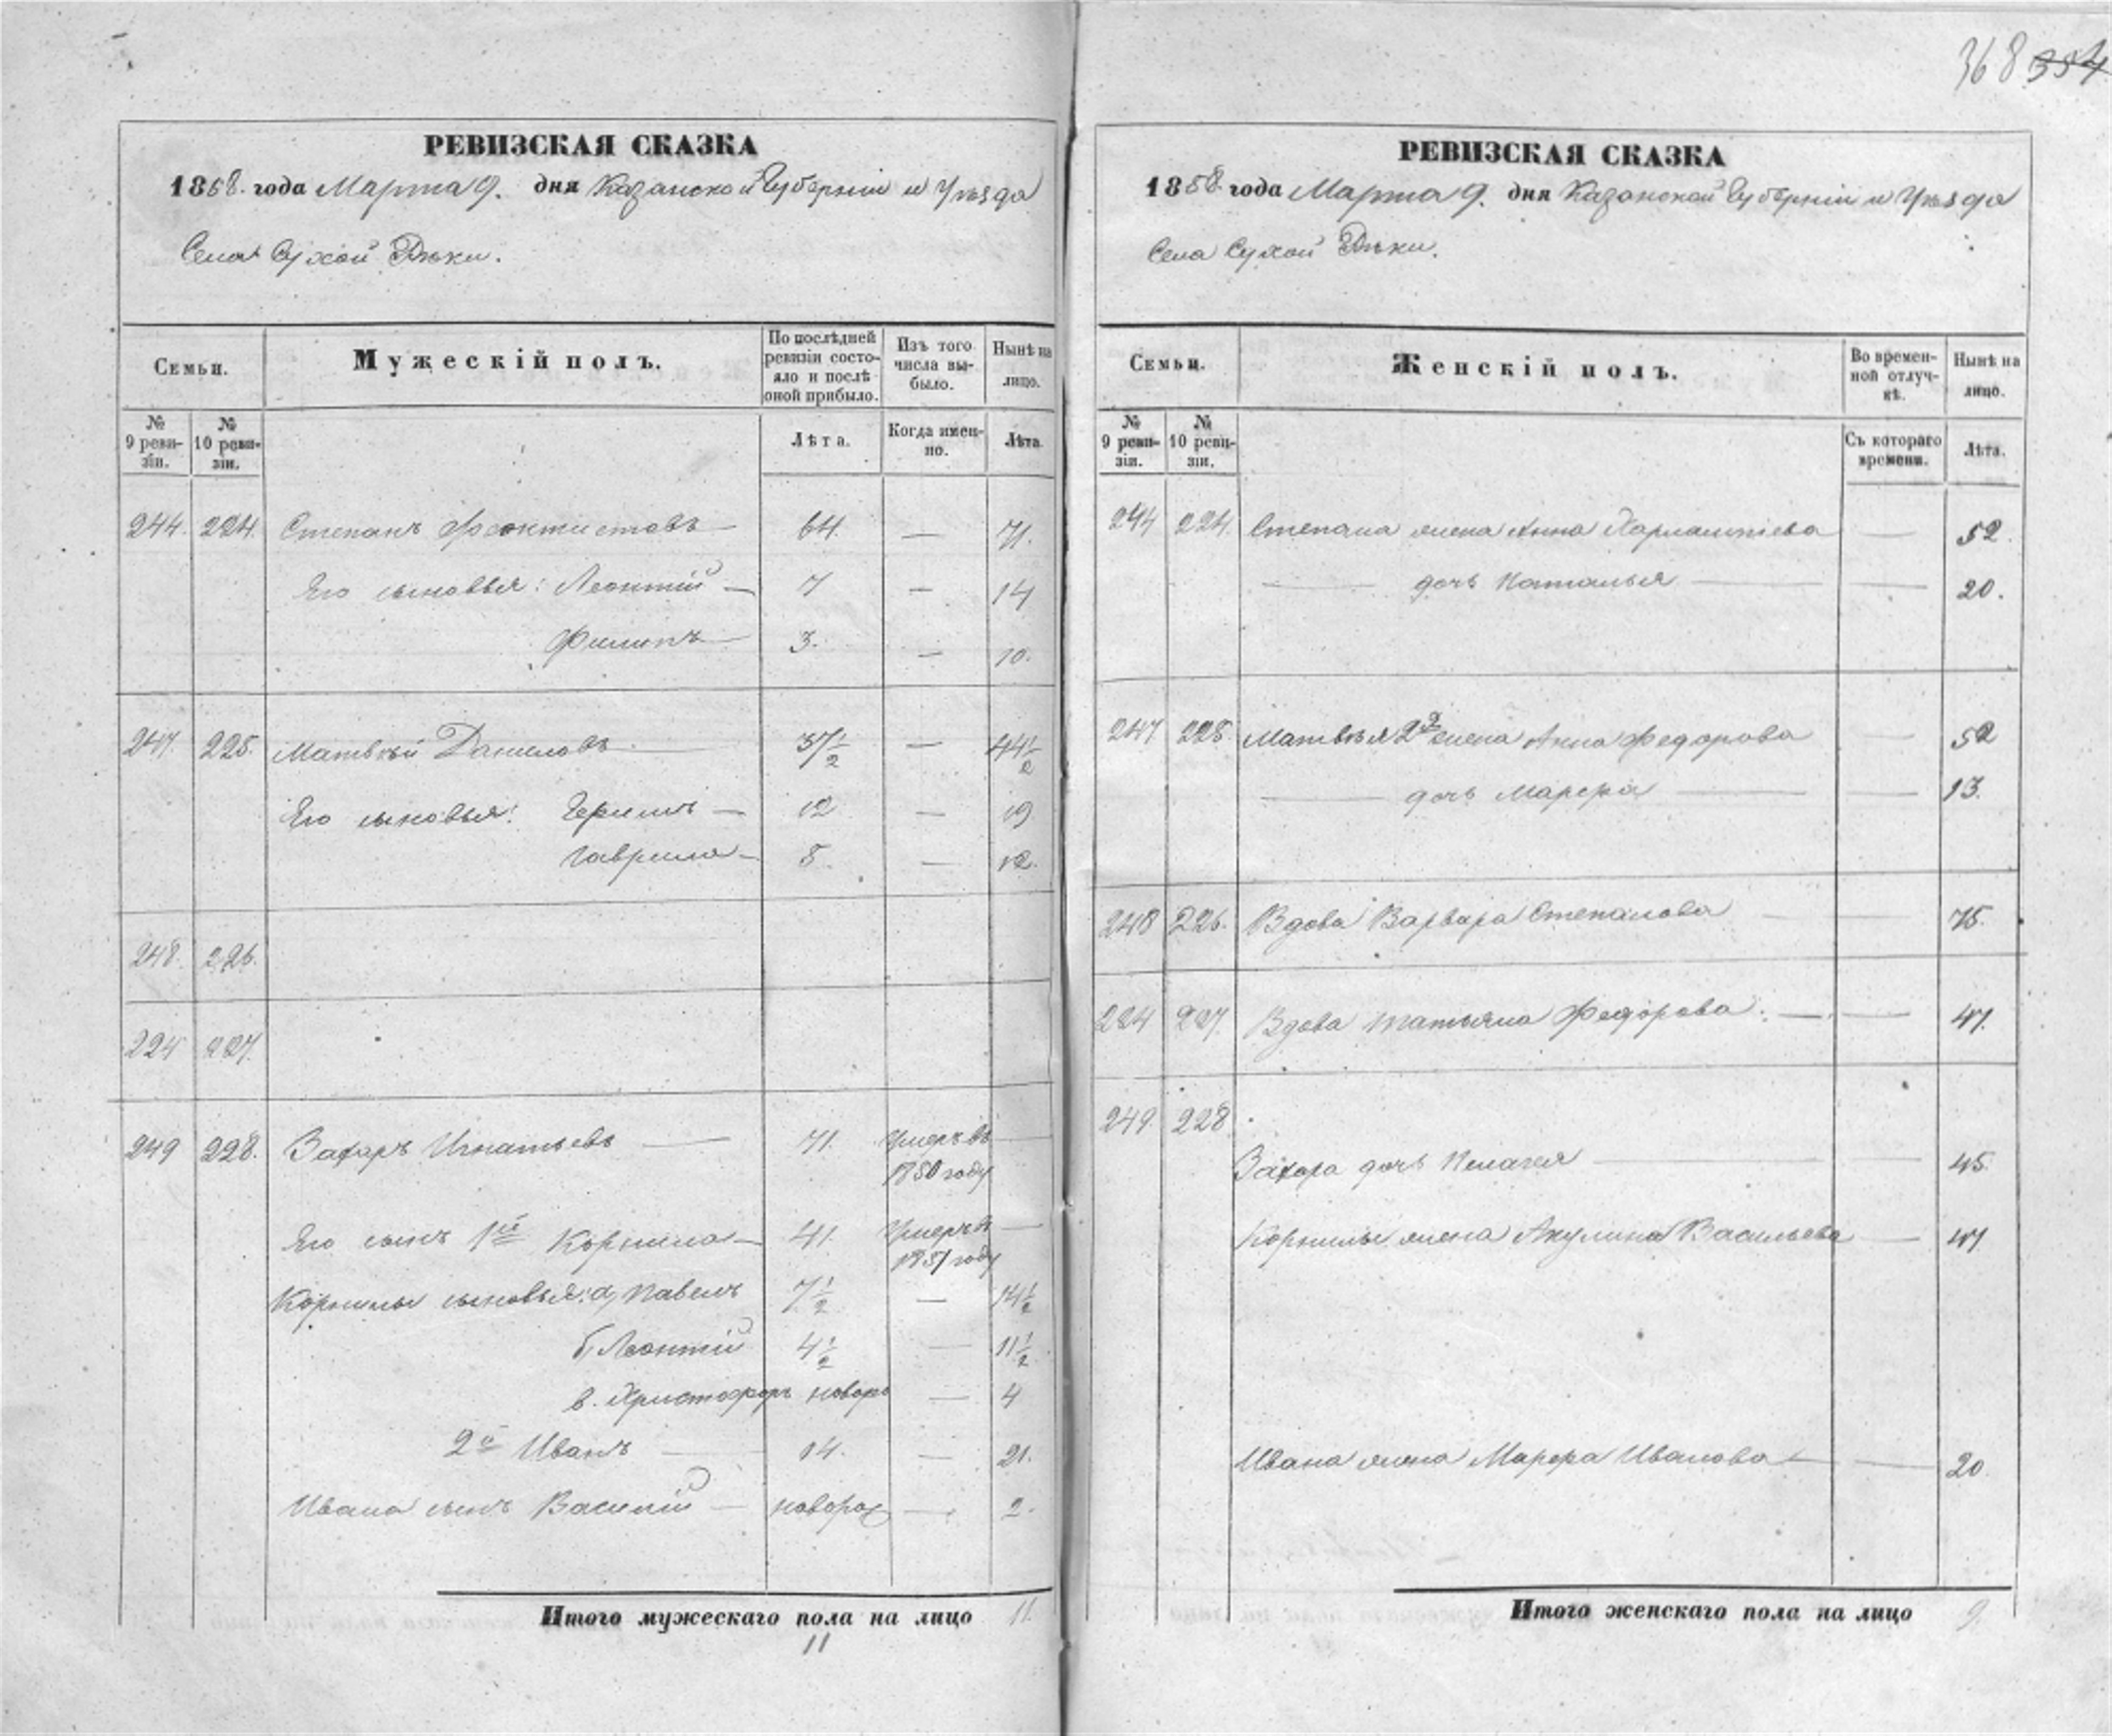 368 354
РЕВИЗСКАЯ СКАЗКА
1858 года Марта 9. дня Казанской Губерніи и Уѣзда
Села Сухой Рѣки.
Семьи.
Мужескій полъ.
По послѣдней ревизіи состо-
яло и послѣ оной прибыло.
Изъ того числа вы-
было.
Нынѣ на лицо.
№ 9 реви-
зіи.
№ 10 реви-
зіи.
Лѣта.
Когда имен-
но.
Лѣта.
244. 224. Степанъ Феоктистовъ 64. — 71.
Его сыновья: Леонтій — 7 — 14
Филипъ — 3. — 10.
247. 225. Матвѣй Даниловъ 37 1/2 — 44 1/2
Его сыновья: — 12 — 19
Гаврила — 5. — 12.
248. 226.
224 227.
249 228. Захаръ Игнатьевъ — 71. Умеръ въ 1850 году —
Его сынъ 1й Корнила — 41. Умеръ въ 1851 году —
Корнилы сыновья: а, Павелъ 7 1/2 — 14 1/2
б, Леонтій 4 1/2 — 11 1/2
в. Христофоръ новоро — 4
2й Иванъ — 14. — 21.
Ивана сынъ Василій — новорож — 2.
Итого мужескаго пола на лицо 11.
11
РЕВИЗСКАЯ СКАЗКА
1858 года Марта 9. дня Казанской Губерніи и Уѣзда
Села Сухой Рѣки.
Семьи.
Женскій полъ.
Во времен-
ной отлуч-
кѣ.
Нынѣ на лицо.
№ 9 реви-
зіи.
№ 10 реви-
зіи.
Съ котораго времени.
Лѣта.
244 224. Степана жена Анна Харлампіева — 52.
— дочь Наталья — — 20.
247 225. Матвѣя 2я жена Анна Федорова — 52
— дочь Марфа — — 13.
248 226. Вдова Варвара Степанова 75.
224 227. Вдова Татьяна Федорова. — — 47.
249. 228.
Захара дочь Пелагея — — 45.
Корнилы жена Акулина Васильева — 47
Ивана жена Марфа Иванова — — 20
Итого женскаго пола на лицо 9.